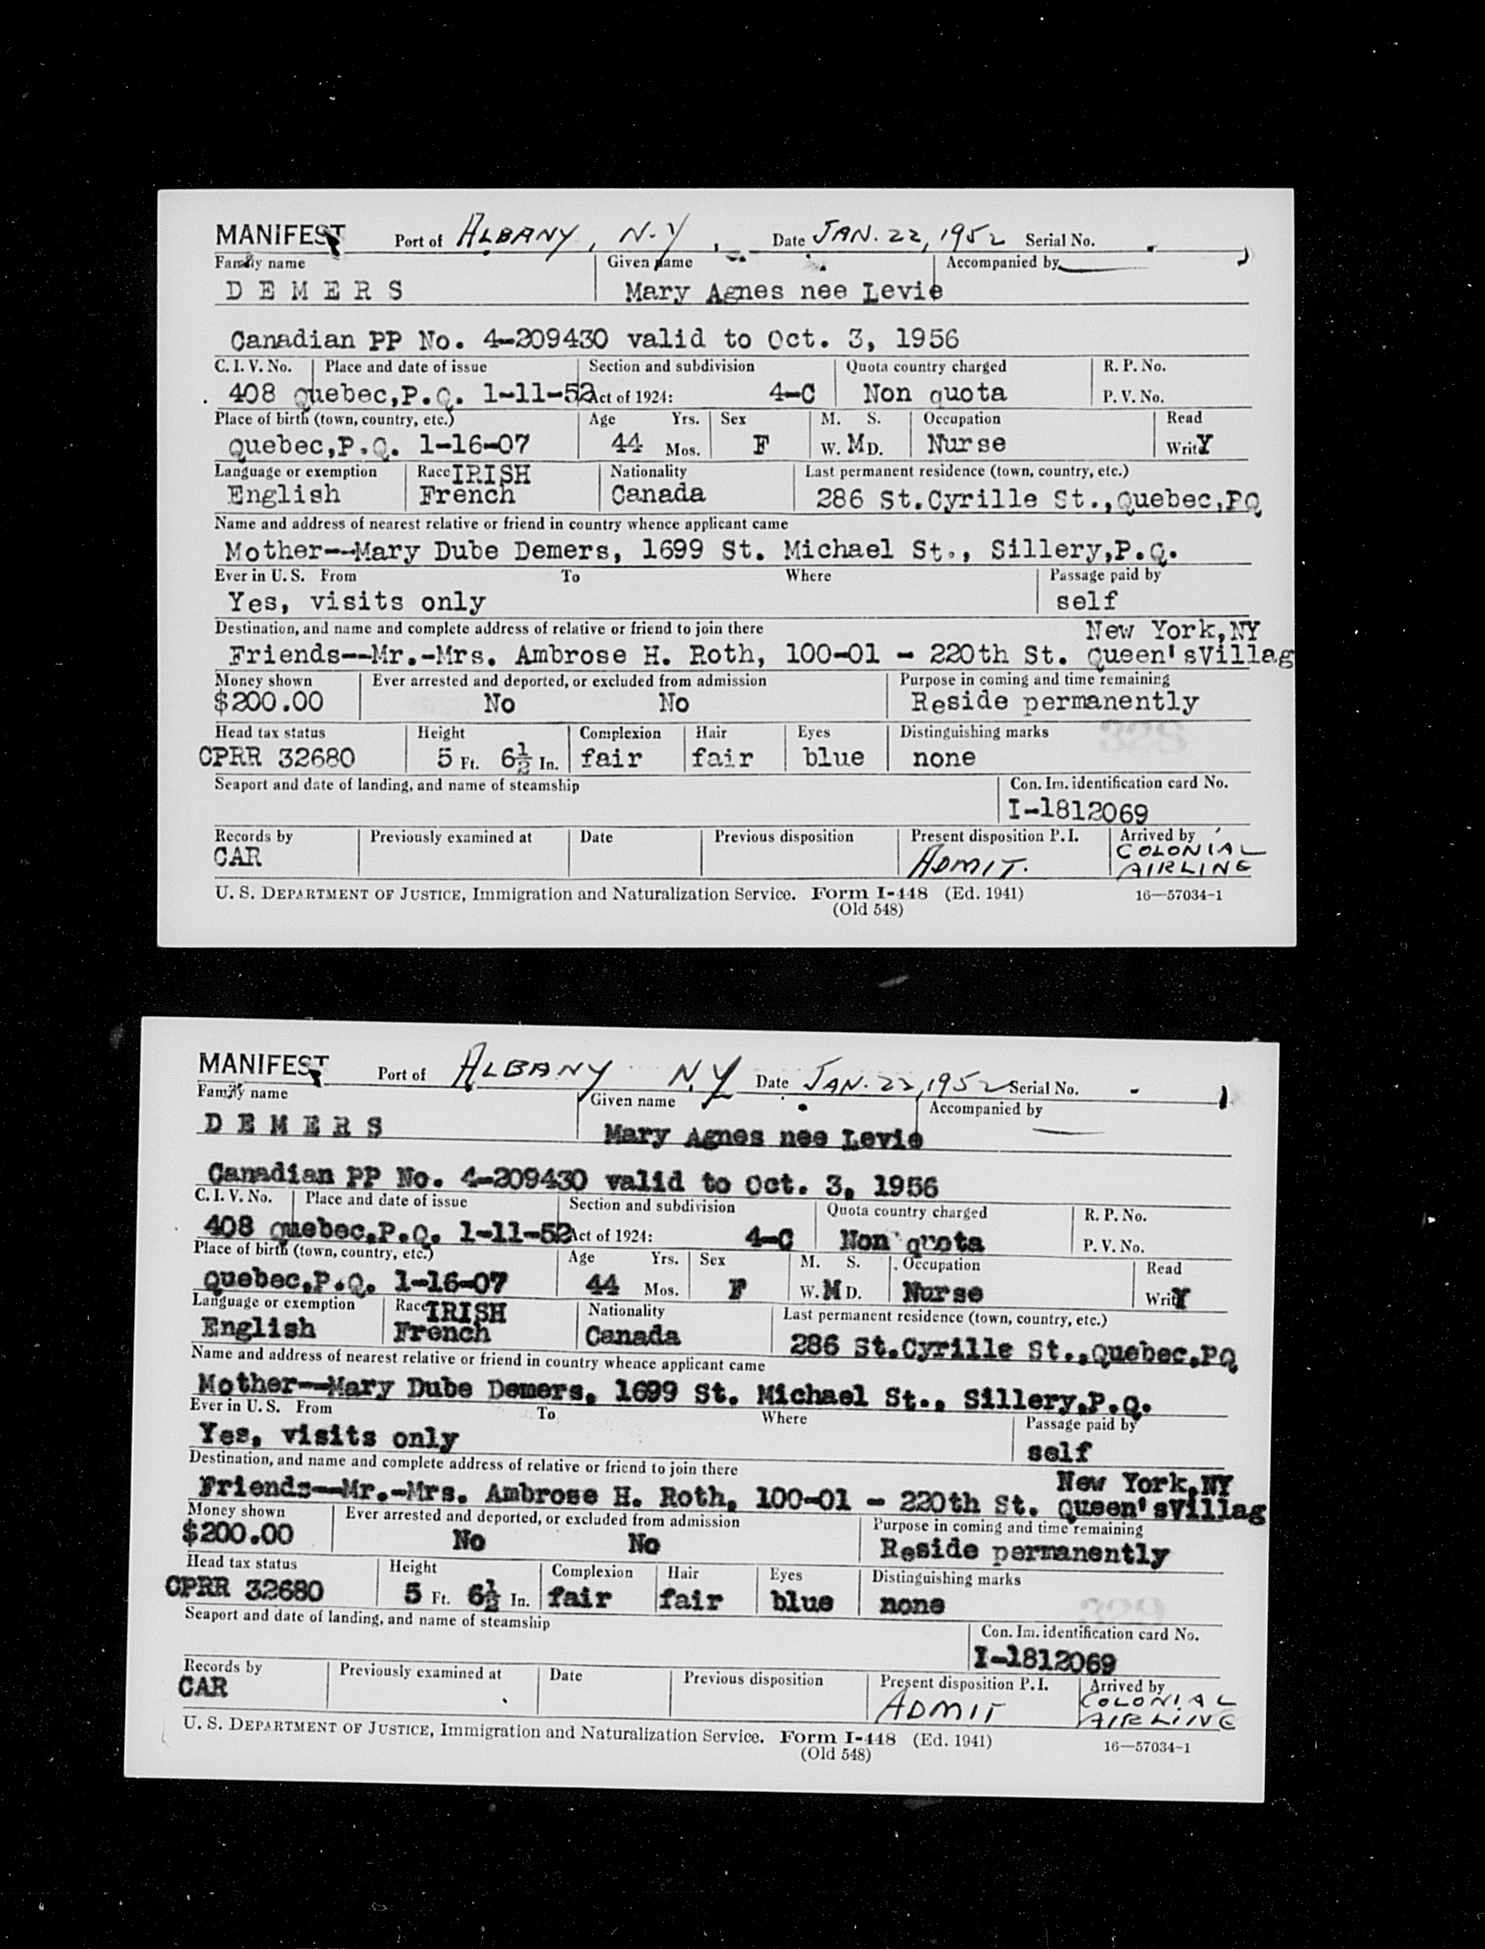 MANIFEST Port of ALBANY, N.Y. Date JAN. 22, 1952 Serial No.
Family name Given name Accompanied by
D E M E R S Mary Agnes nee Levie
Canadian PP No. 4-209430 valid to Oct. 3, 1956
C. I. V. No. Place and date of issue Section and subdivision Quota country charged R. P. No.
408 Quebec,P.Q. 1-11-52 Act of 1924: 4-C Non quota P. V. No.
Place of birth (town, country, etc.) Age Yrs. Sex M. S. Occupation Read
Quebec,P.Q. 1-16-07 44 Mos. F W. M D. Nurse Writ Y
Language or exemption Race IRISH Nationality Last permanent residence (town, country, etc.)
English French Canada 286 St.Cyrille St.,Quebec,PQ
Name and address of nearest relative or friend in country whence applicant came
Mother--Mary Dube Demers, 1699 St. Michael St., Sillery,P.Q.
Ever in U. S. From To Where Passage paid by
Yes, visits only self
Destination, and name and complete address of relative or friend to join there New York,NY
Friends--Mr.-Mrs. Ambrose H. Roth, 100-01 - 220th St. Queen'sVillag
Money shown Ever arrested and deported, or excluded from admission Purpose in coming and time remaining
$200.00 No No Reside permanently
Head tax status Height Complexion Hair Eyes Distinguishing marks
CPRR 32680 5 Ft. 6½ In. fair fair blue none
Seaport and date of landing, and name of steamship Con. Im. identification card No.
I-1812069
Records by Previously examined at Date Previous disposition Present disposition P. I. Arrived by
CAR ADMIT. COLONIAL
AIRLINE
U. S. DEPARTMENT OF JUSTICE, Immigration and Naturalization Service. Form I-448 (Ed. 1941) 16—57034-1
(Old 548)
MANIFEST Port of ALBANY N.Y Date JAN. 22, 1952 Serial No.
Family name Given name Accompanied by
D E M E R S Mary Agnes nee Levie
Canadian PP No. 4-209430 valid to Oct. 3, 1956
C. I. V. No. Place and date of issue Section and subdivision Quota country charged R. P. No.
408 Quebec,P.Q. 1-11-52 Act of 1924: 4-C Non quota P. V. No.
Place of birth (town, country, etc.) Age Yrs. Sex M. S. Occupation Read
Quebec,P.Q. 1-16-07 44 Mos. F W. M D. Nurse Writ Y
Language or exemption Race IRISH Nationality Last permanent residence (town, country, etc.)
English French Canada 286 St.Cyrille St.,Quebec,PQ
Name and address of nearest relative or friend in country whence applicant came
Mother--Mary Dube Demers, 1699 St. Michael St., Sillery,P.Q.
Ever in U. S. From To Where Passage paid by
Yes, visits only self
Destination, and name and complete address of relative or friend to join there New York,NY
Friends--Mr.-Mrs. Ambrose H. Roth, 100-01 - 220th St. Queen'sVillag
Money shown Ever arrested and deported, or excluded from admission Purpose in coming and time remaining
$200.00 No No Reside permanently
Head tax status Height Complexion Hair Eyes Distinguishing marks
CPRR 32680 5 Ft. 6½ In. fair fair blue none
Seaport and date of landing, and name of steamship Con. Im. identification card No.
I-1812069
Records by Previously examined at Date Previous disposition Present disposition P. I. Arrived by
CAR ADMIT COLONIAL
AIRLINE
U. S. DEPARTMENT OF JUSTICE, Immigration and Naturalization Service. Form I-448 (Ed. 1941) 16—57034-1
(Old 548)